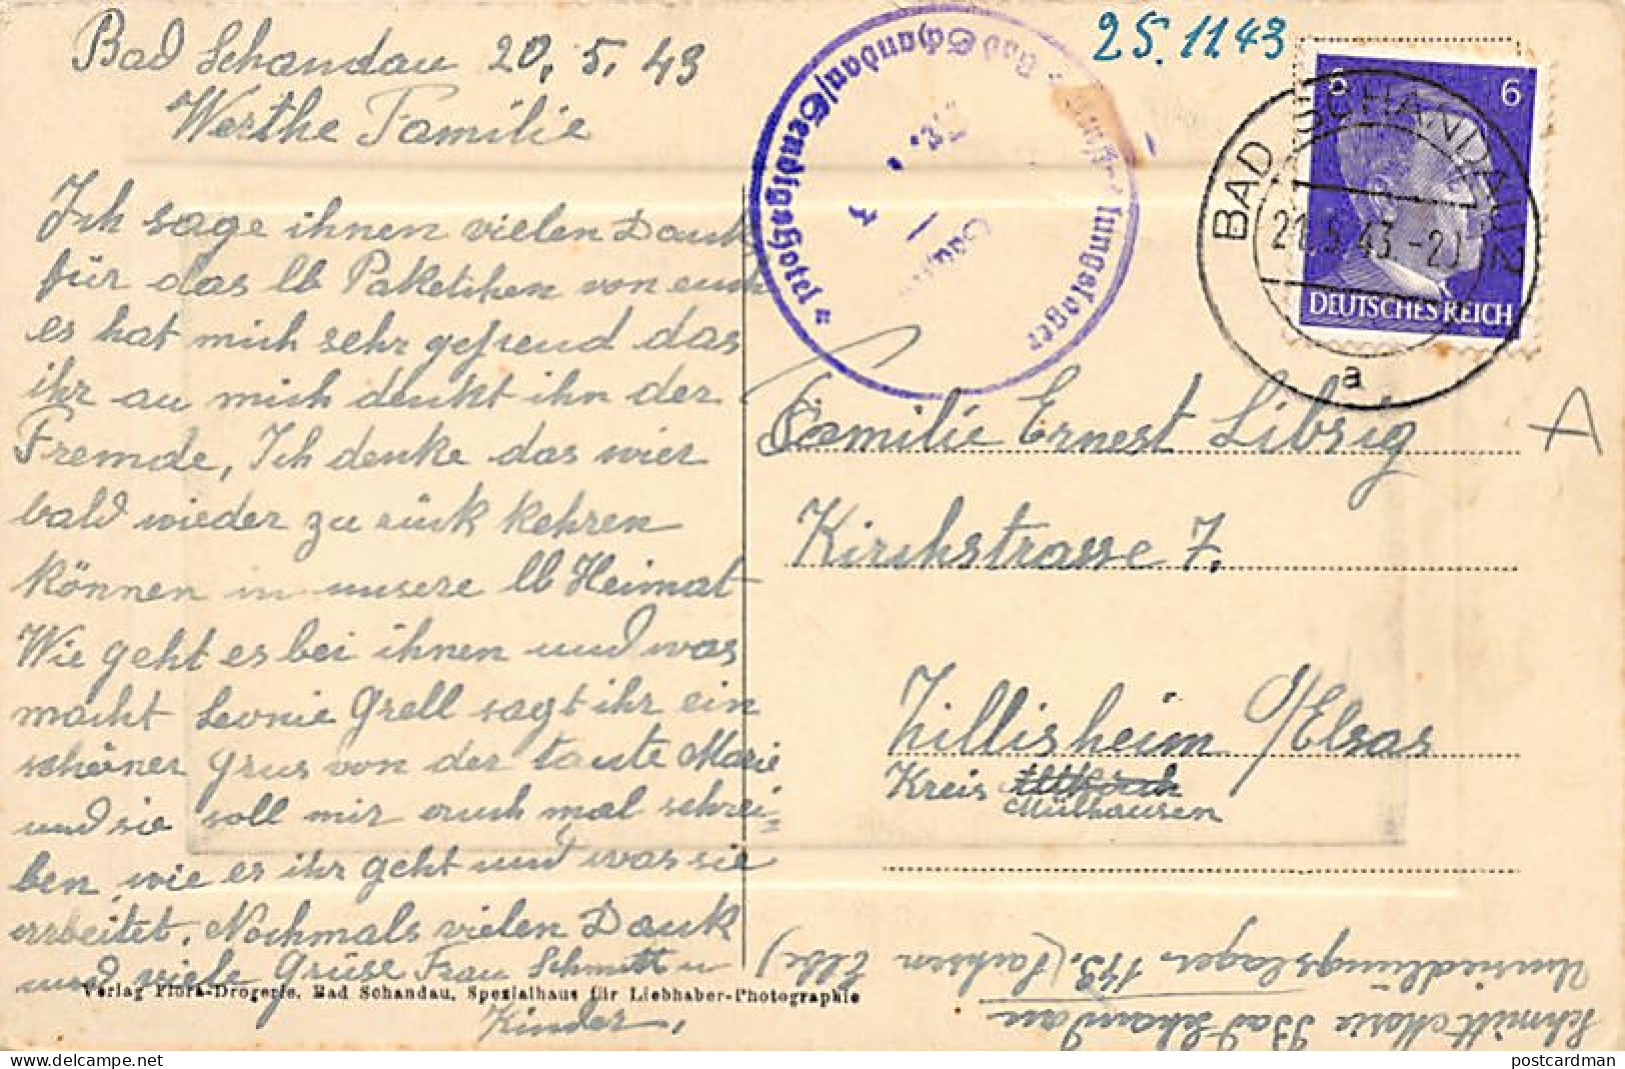 Bad Schandau 20. 5. 43
Werthe Familie
Ich sage ihnen vielen Dank
für das lb Paketchen von euch
es hat mich sehr gefreud das
ihr au mich denkt ihn der
Fremde, Ich denke das wier
bald wieder zu rück kehren
können in unsere lb Heimat
Wie geht es bei ihnen und was
macht Leonie Grell sagt ihr ein
schöner Grus von der tante Marie
und sie soll mir auch mal schrei=
ben, wie es ihr geht und was sie
arbeitet. Nochmals vielen Dank
und viele Grüse Frau Schmitt u
Kinder.
Verlag Flora-Drogerie, Bad Schandau, Spezialhaus für Liebhaber-Photographie
25.11.43
Bad Schandau/Sendigshotel
lager
6 6
DEUTSCHES REICH
BAD SCHANDAU 2
21.5.43.-20
a
Familie Ernest Libsig
A
Kirchstrasse 7.
Zillisheim O/Elsas
Kreis Altkirch
Mülhausen
Schmitt Marie Bad Schandau
Umsiedlungslager 143. (Sachsen Elbe)
www.delcampe.net
postcardman